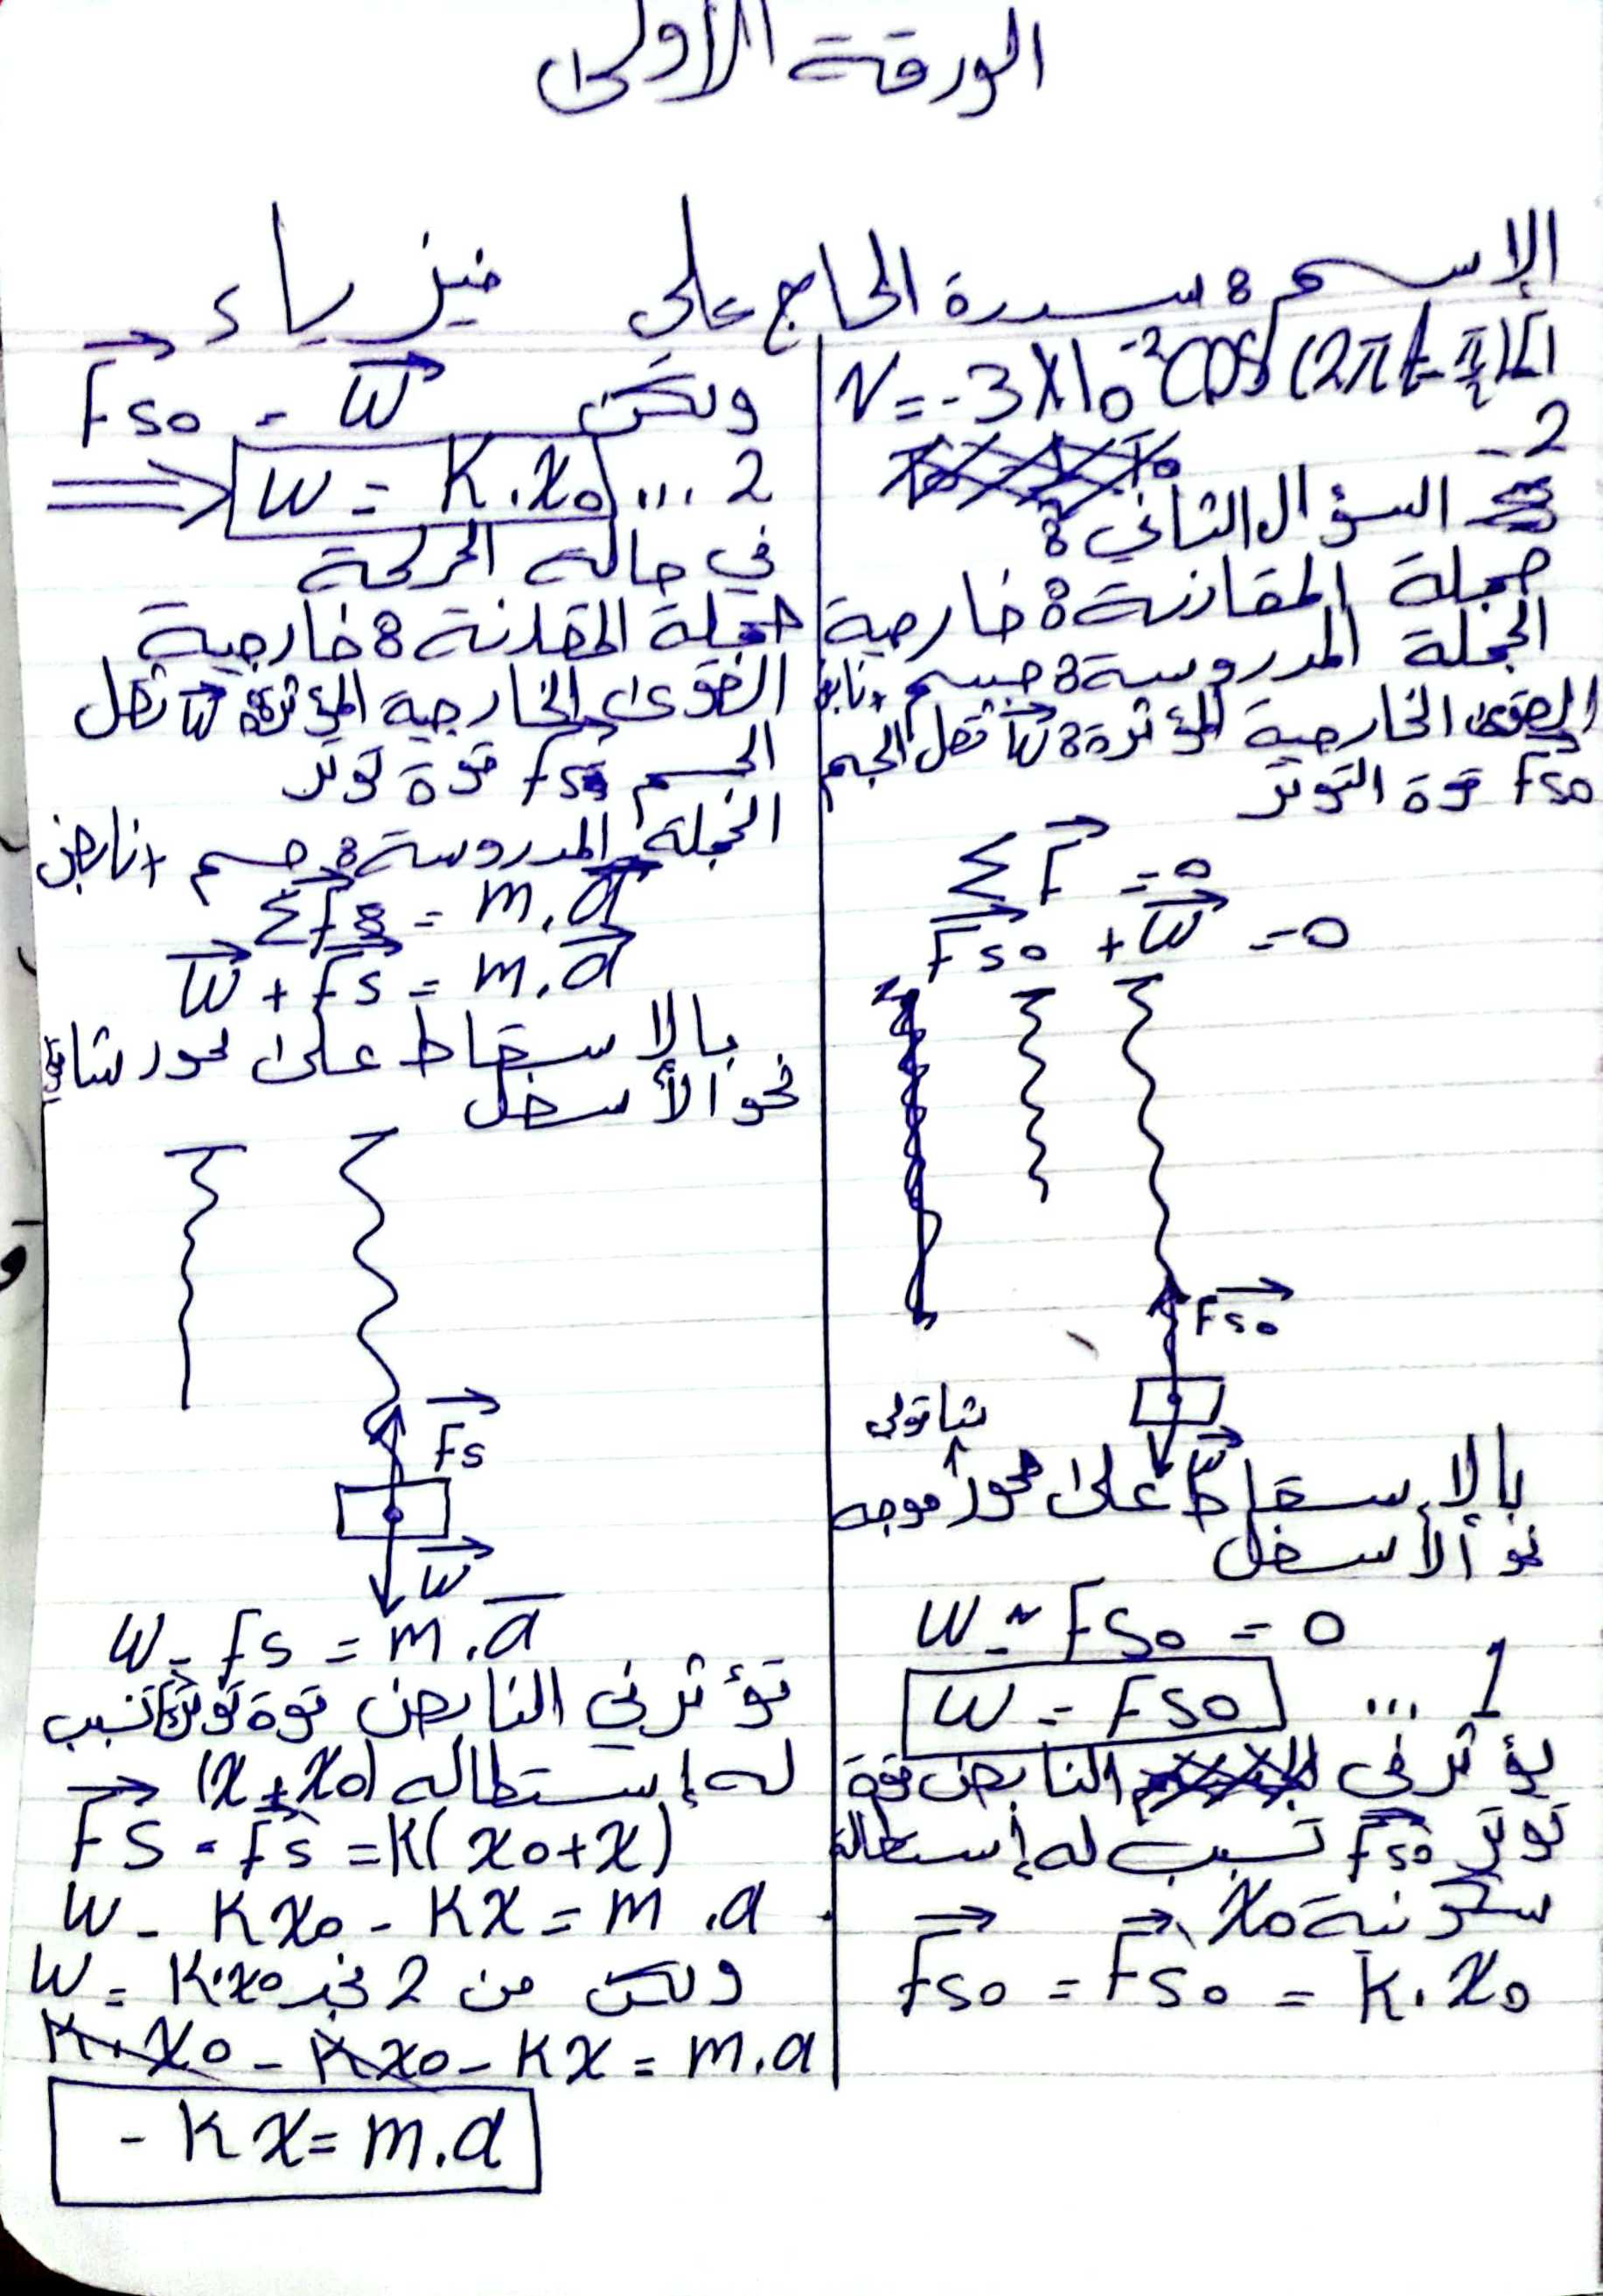 الورقة الأولى
الإسم : سدرة الحاج علي فيزياء
1] v = -3 × 10⁻² cos (2πt - π/2)
- 2
السؤال الثاني :
جملة المقارنة : خارجية
الجملة المدروسة : جسم + نابض
القوى الخارجية المؤثرة : W ثقل الجسم
Fs0 قوة التوتر
Σ F = 0
Fs0 + W = 0
Fs0
W
بالإسقاط على محور شاقولي موجه
نحو الأسفل
W - Fs0 = 0
W = Fs0 ... 1
يؤثر في النابض قوة
توتر Fs0 تسبب له إستطالة
سكونية x0
Fs0 = Fs0 = K . x0
ولكن Fs0 = W
⟹ W = K . x0 ... 2
في حالة الحركة
جملة المقارنة : خارجية
القوى الخارجية المؤثرة : W ثقل
الجسم Fs قوة توتر
الجملة المدروسة : جسم + نابض
ΣF = m . a
W + Fs = m . a
بالإسقاط على محور شاقولي
نحو الأسفل
Fs
W
W - Fs = m . a
تؤثر في النابض قوة توتر تسبب
له إستطالة (x + x0)
Fs = Fs = K( x0 + x)
W - K x0 - K x = m . a
ولكن من 2 نجد W = K . x0
K . x0 - K x0 - K x = m . a
- K x = m . a